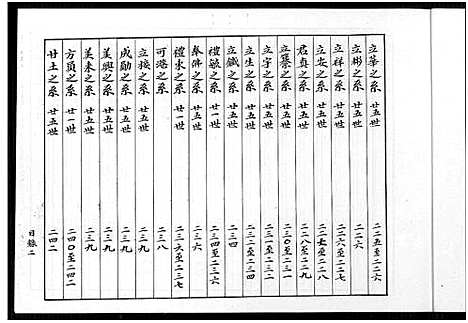 立華之系 廿五世 二二五至二二六
立彬之系 廿五世 二二六
立祥之系 廿五世 二二六至二二七
立安之系 廿五世 二二七至二二八
君真之系 廿五世 二二八至二二九
立綮之系 廿五世 二三〇至二三一
立宇之系 廿五世 二三一至二三二
立生之系 廿五世 二三二至二三四
立鐵之系 廿五世 二三四
禮毓之系 廿一世 二三四至二三六
奉佛之系 廿五世 二三六
禮永之系 廿一世 二三六至二三七
可港之系 二三八
立接之系 廿五世 二三九
成勛之系 廿五世 二三九
美興之系 廿五世 二三九
美來之系 廿五世 二三九
方員之系 廿一世 二四〇至二四二
廿土之系 廿五世 二四二
目錄二